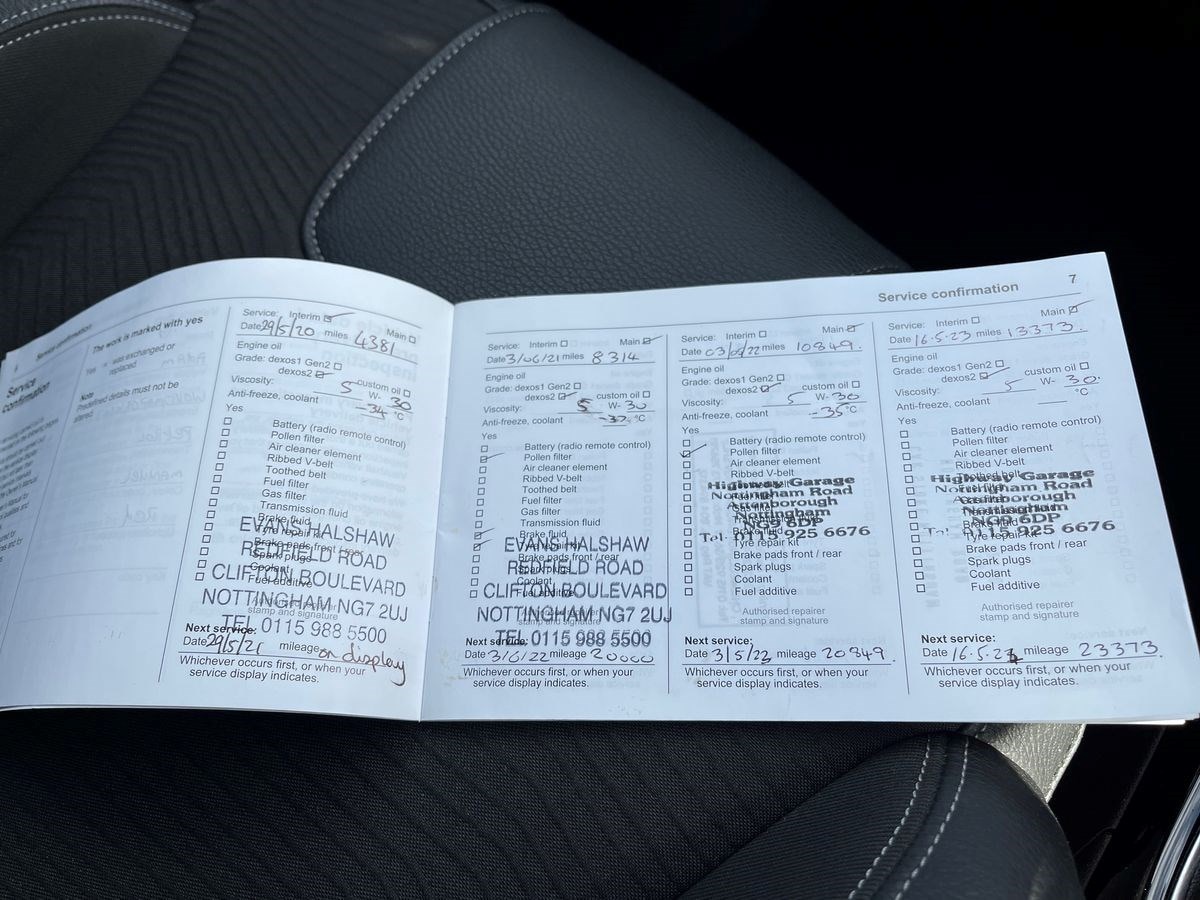 Service confirmation
The work is marked with yes
Yes = was exchanged or
replaced
Note
Predefined details must not be
altered.
Service
confirmation
Service: Interim Main
Date 29/5/20 miles 4381
Engine oil
Grade: dexos1 Gen2
dexos2 custom oil
Viscosity: 5 W- 30
Anti-freeze, coolant -34 °C
Yes
Battery (radio remote control)
Pollen filter
Air cleaner element
Ribbed V-belt
Toothed belt
Fuel filter
Gas filter
Transmission fluid
Brake fluid
Tyre repair kit
Brake pads front / rear
Spark plugs
Coolant
Fuel additive
EVANS HALSHAW
REDFIELD ROAD
CLIFTON BOULEVARD
NOTTINGHAM NG7 2UJ
TEL 0115 988 5500
Authorised repairer
stamp and signature
Next service:
Date 29/5/21 mileage on display
Whichever occurs first, or when your
service display indicates.
Service confirmation 7
Service: Interim Main
Date 3/06/21 miles 8314
Engine oil
Grade: dexos1 Gen2
dexos2 custom oil
Viscosity: 5 W- 30
Anti-freeze, coolant -37 °C
Yes
Battery (radio remote control)
Pollen filter
Air cleaner element
Ribbed V-belt
Toothed belt
Fuel filter
Gas filter
Transmission fluid
Brake fluid
Tyre repair kit
Brake pads front / rear
Spark plugs
Coolant
Fuel additive
EVANS HALSHAW
REDFIELD ROAD
CLIFTON BOULEVARD
NOTTINGHAM NG7 2UJ
TEL 0115 988 5500
Authorised repairer
stamp and signature
Next service:
Date 3/6/22 mileage 20000
Whichever occurs first, or when your
service display indicates.
Service: Interim Main
Date 03/05/22 miles 10849.
Engine oil
Grade: dexos1 Gen2
dexos2 custom oil
Viscosity: 5 W- 30
Anti-freeze, coolant -35 °C
Yes
Battery (radio remote control)
Pollen filter
Air cleaner element
Ribbed V-belt
Toothed belt
Fuel filter
Gas filter
Transmission fluid
Brake fluid
Tyre repair kit
Brake pads front / rear
Spark plugs
Coolant
Fuel additive
Highway Garage
Nottingham Road
Attenborough
Nottingham
NG9 6DP
Tel: 0115 925 6676
Authorised repairer
stamp and signature
Next service:
Date 3/5/23 mileage 20849.
Whichever occurs first, or when your
service display indicates.
Service: Interim Main
Date 16.5.23 miles 13373.
Engine oil
Grade: dexos1 Gen2
dexos2 custom oil
Viscosity: 5 W- 30.
Anti-freeze, coolant °C
Yes
Battery (radio remote control)
Pollen filter
Air cleaner element
Ribbed V-belt
Toothed belt
Fuel filter
Gas filter
Transmission fluid
Brake fluid
Tyre repair kit
Brake pads front / rear
Spark plugs
Coolant
Fuel additive
Highway Garage
Nottingham Road
Attenborough
Nottingham
NG9 6DP
Tel: 0115 925 6676
Authorised repairer
stamp and signature
Next service:
Date 16.5.24 mileage 23373.
Whichever occurs first, or when your
service display indicates.